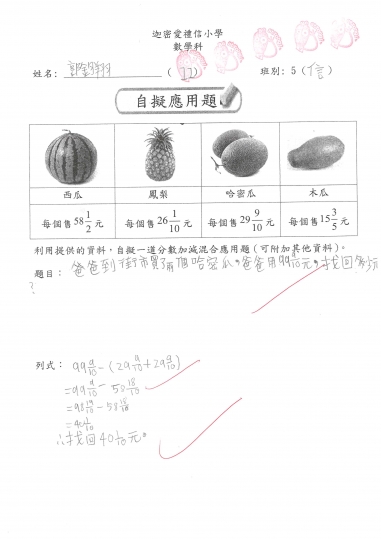 迦密愛禮信小學
數學科
姓名： ( 12 ) 班別: 5 (信)
自擬應用題
西瓜 鳳梨 哈密瓜 木瓜
每個售58 1/2 元 每個售26 1/10 元 每個售29 9/10 元 每個售15 3/5 元
利用提供的資料，自擬一道分數加減混合應用題(可附加其他資料)。
題目： 爸爸到街市買了兩個哈密瓜。爸爸用99 9/10元，找回多少元
?
列式： 99 9/10 - (29 9/10 + 29 9/10)
= 99 9/10 - 58 18/10
= 98 19/10 - 58 18/10
= 40 1/10
∴找回40 1/10元。